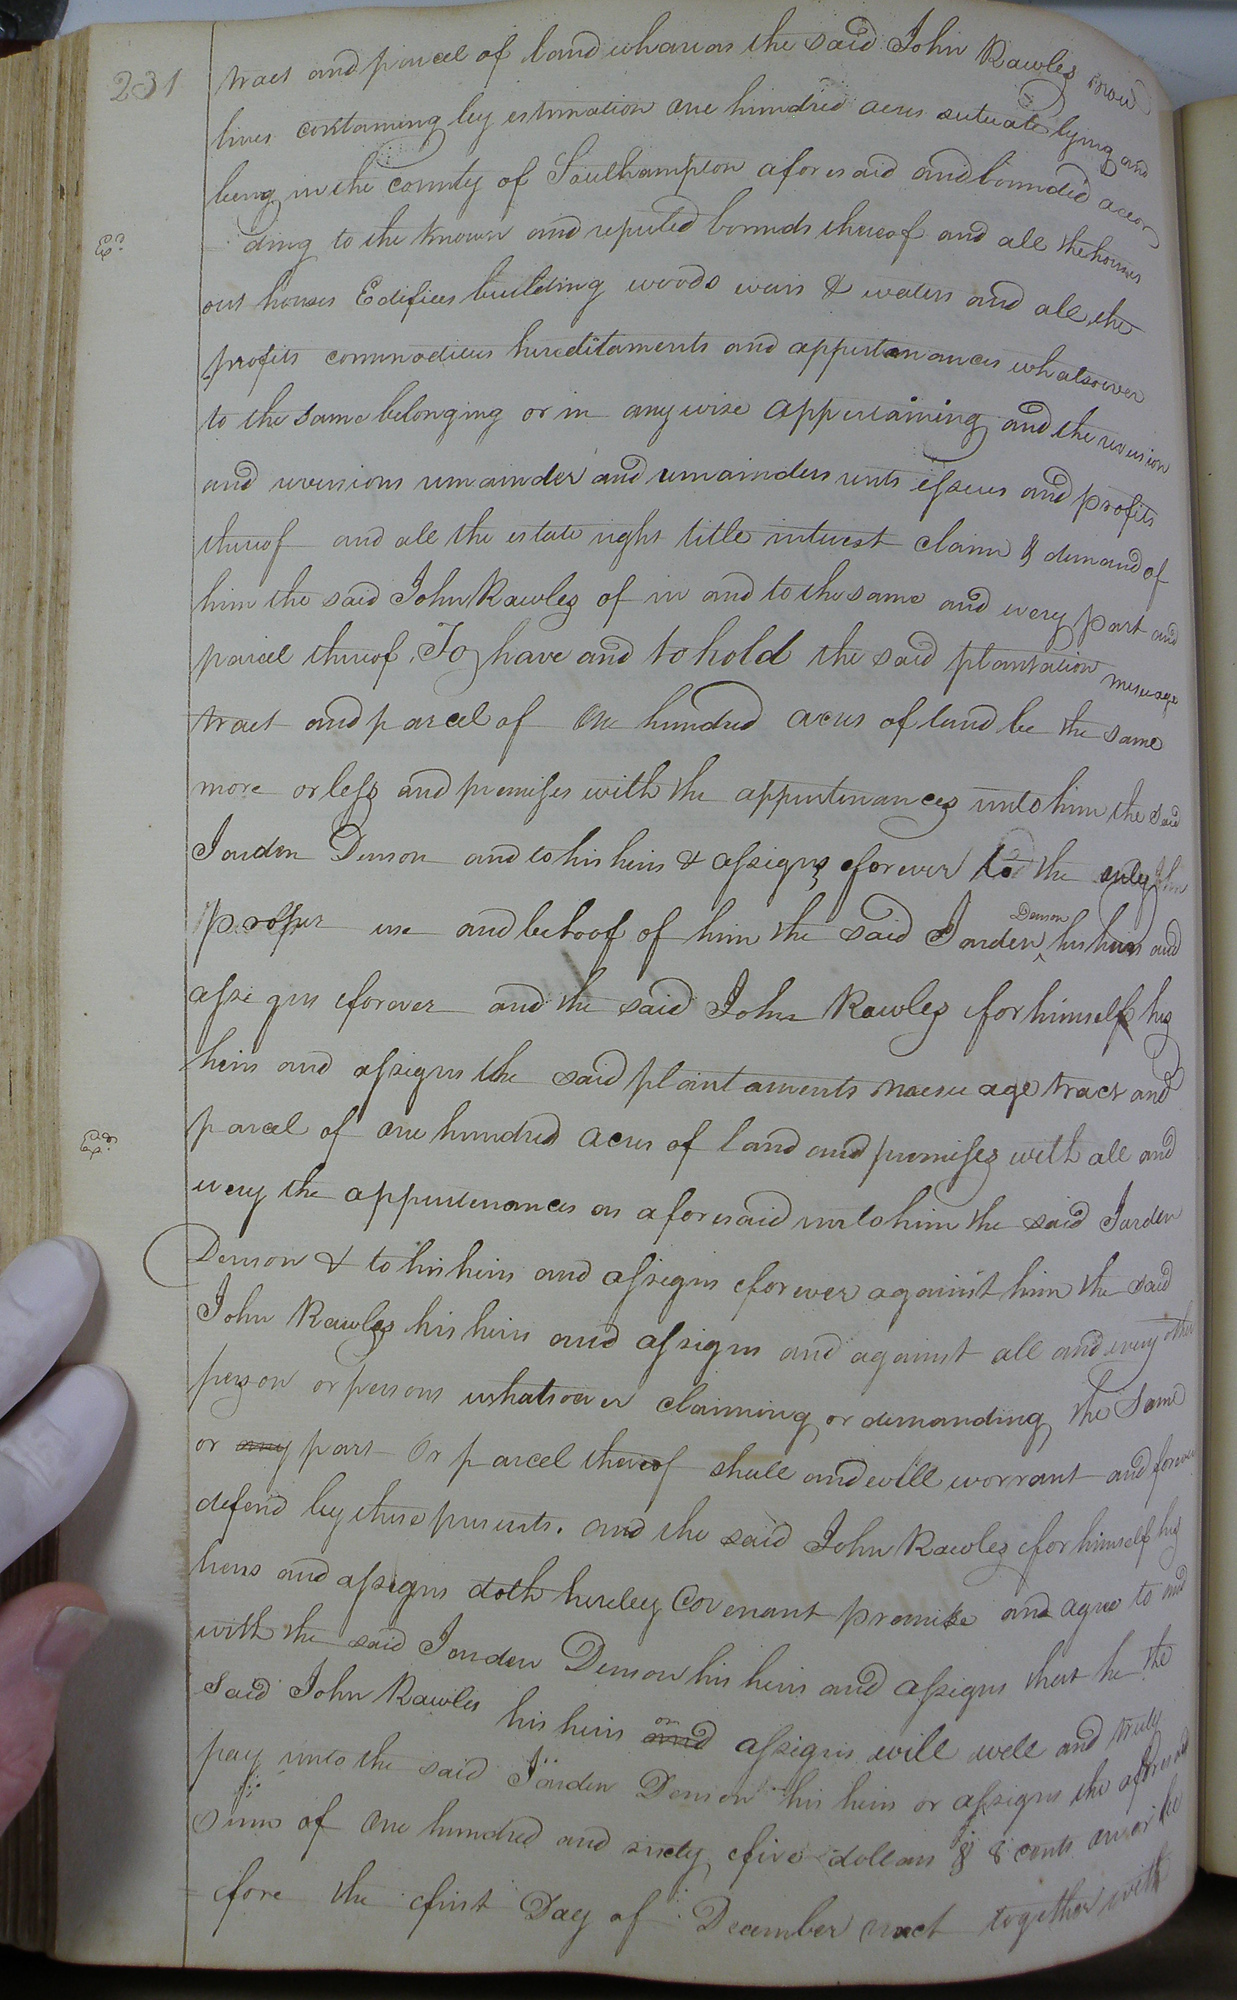 231
tract and parcel of land whareas the said John Rawles now
lives containing by estimation one hundred acres sutuate lying and
being in the county of Southampton aforesaid and bounded accor
ding to the known and reputed bounds thereof and all the houses
out houses Edifices building woods wais & waters and all the
profits commodities hereditaments and appurtenances whatsoever
to the same belonging or in any wise appertaining and the reversion
and reversions remainder and remainders rents issues and profits
thereof and all the estate right title interest claim & demand of
him the said John Rawles of in and to the same and every part and
parcel thereof. To have and to hold the said plantation mesuage
tract and parcel of One hundred acres of land be the same
more or less and premises with the appurtenances unto him the said
Jorden Denson and to his heirs & assigns forever to the only
proper use and behoof of him the said Jorden Denson his heirs and
assigns forever and the said John Rawles for himself his
heirs and assigns the said plantaments mesuage tract and
parcel of one hundred acres of land and premises with all and
every the appurtenances as aforesaid unto him the said Jorden
Denson & to his heirs and assigns forever against him the said
John Rawles his heirs and assigns and against all and every other
person or persons whatsoever claiming or demanding the same
or any part Or parcel thereof shall and will warrant and forever
defend by these presents. and the said John Rawles for himself his
heirs and assigns doth hereby Covenant promise and agree to and
with the said Jorden Denson his heirs and assigns that he the
said John Rawles his heirs and or assigns will well and truly
pay unto the said Jorden Denson his heirs or assigns the aforesaid
Sum of One hundred and sixty five dollars & 8 cents on or be
fore the first Day of December next together with